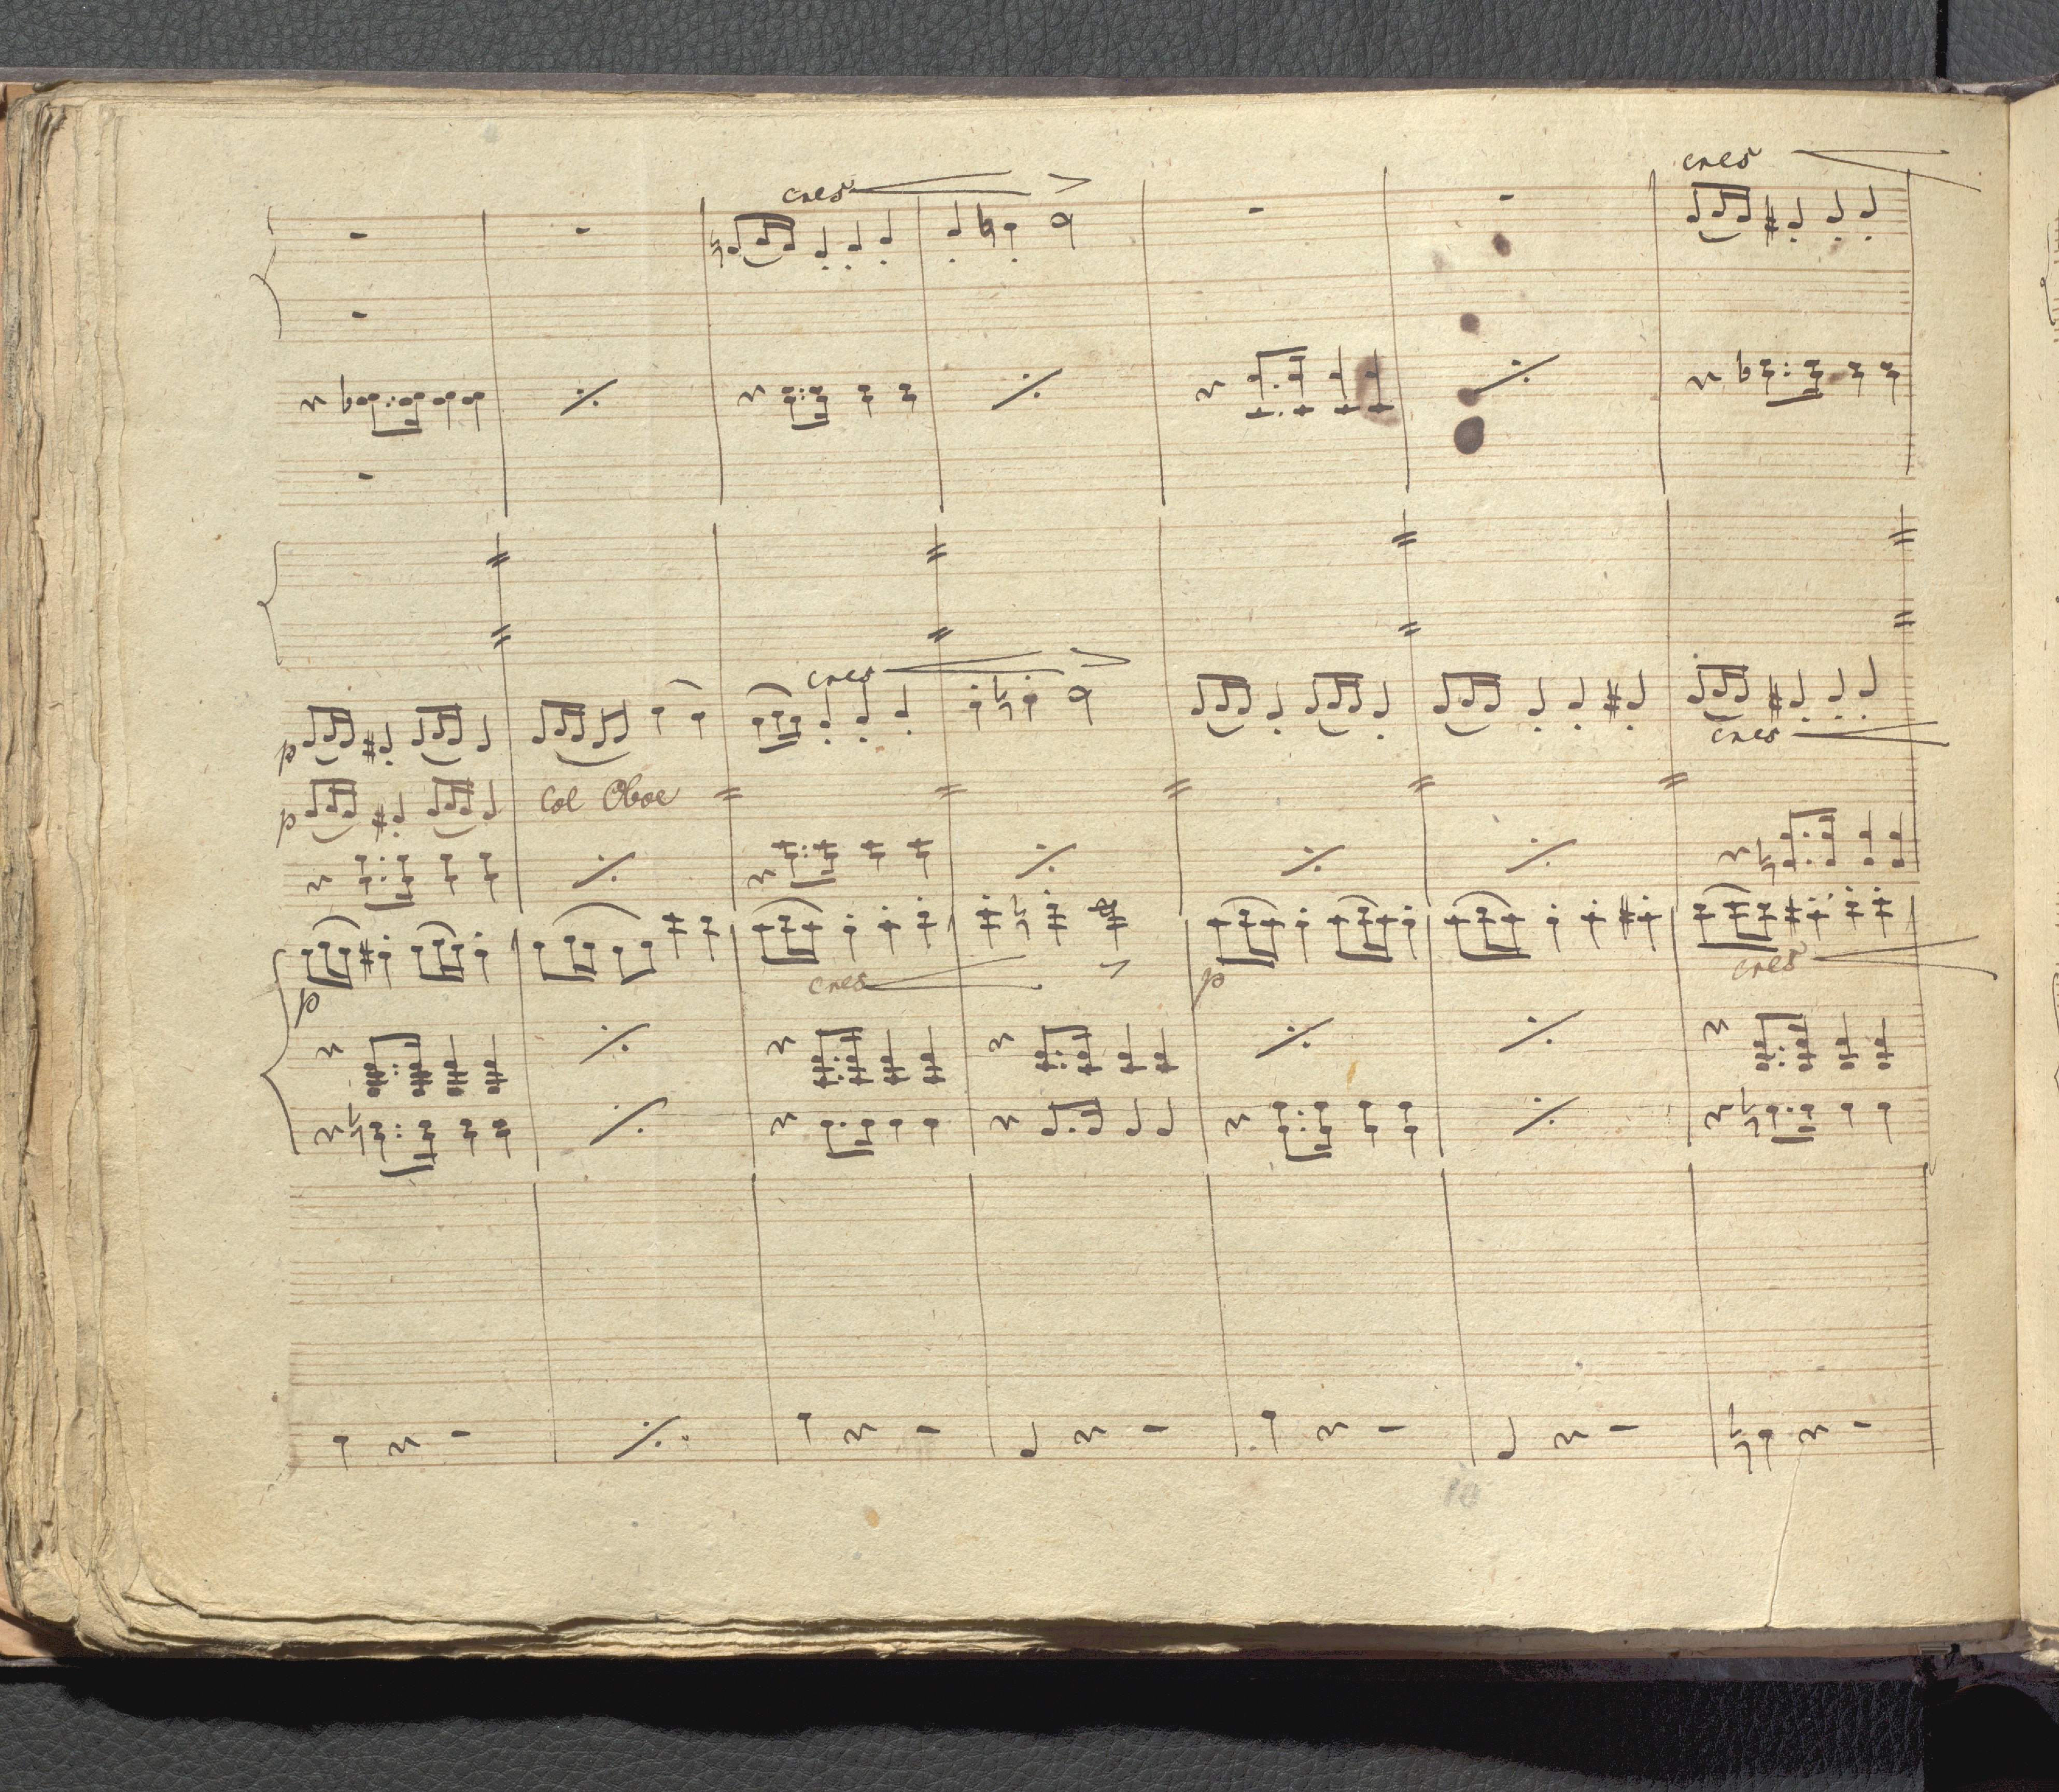 cres
cres
cres
cres
p
p
Col Oboe
cres
cres
p
p
10